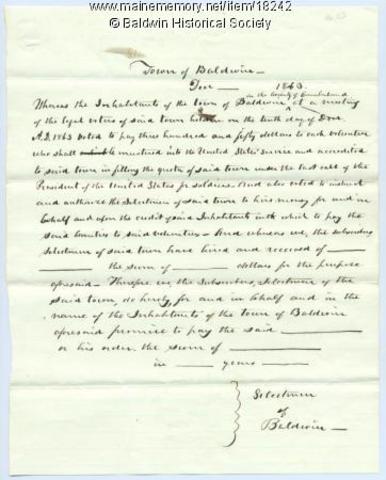 www.mainememory.net/item/18242
© Baldwin Historical Society
Town of Baldwin —
Dec — 1863.
in the County of Cumberland
Whereas the Inhabitants of the town of Baldwin ^ at a meeting
of the legal voters of said town on the tenth day of Decr.
A.D. 1863 voted to pay three hundred and fifty dollars to each volunteer
who shall mustered into the United States service and accredited
to said town in filling the quota of said town under the last call of the
President of the United States for soldiers. And also voted to instruct
and authorize the Selectmen of said town to hire money for and in
behalf and upon the credit of said Inhabitants with which to pay the
said bounties to said volunteers. And whereas we, the subscribers
Selectmen of said town have hired and received of ———
——— the sum of ——— dollars for the purpose
aforesaid — Therefore we the Subscribers, Selectmen of the
said town, do hereby for and in behalf and in the
name of the Inhabitants of the Town of Baldwin
aforesaid promise to pay the said ———
or his order, the sum of ———
in ——— years ———
Selectmen
of
Baldwin —